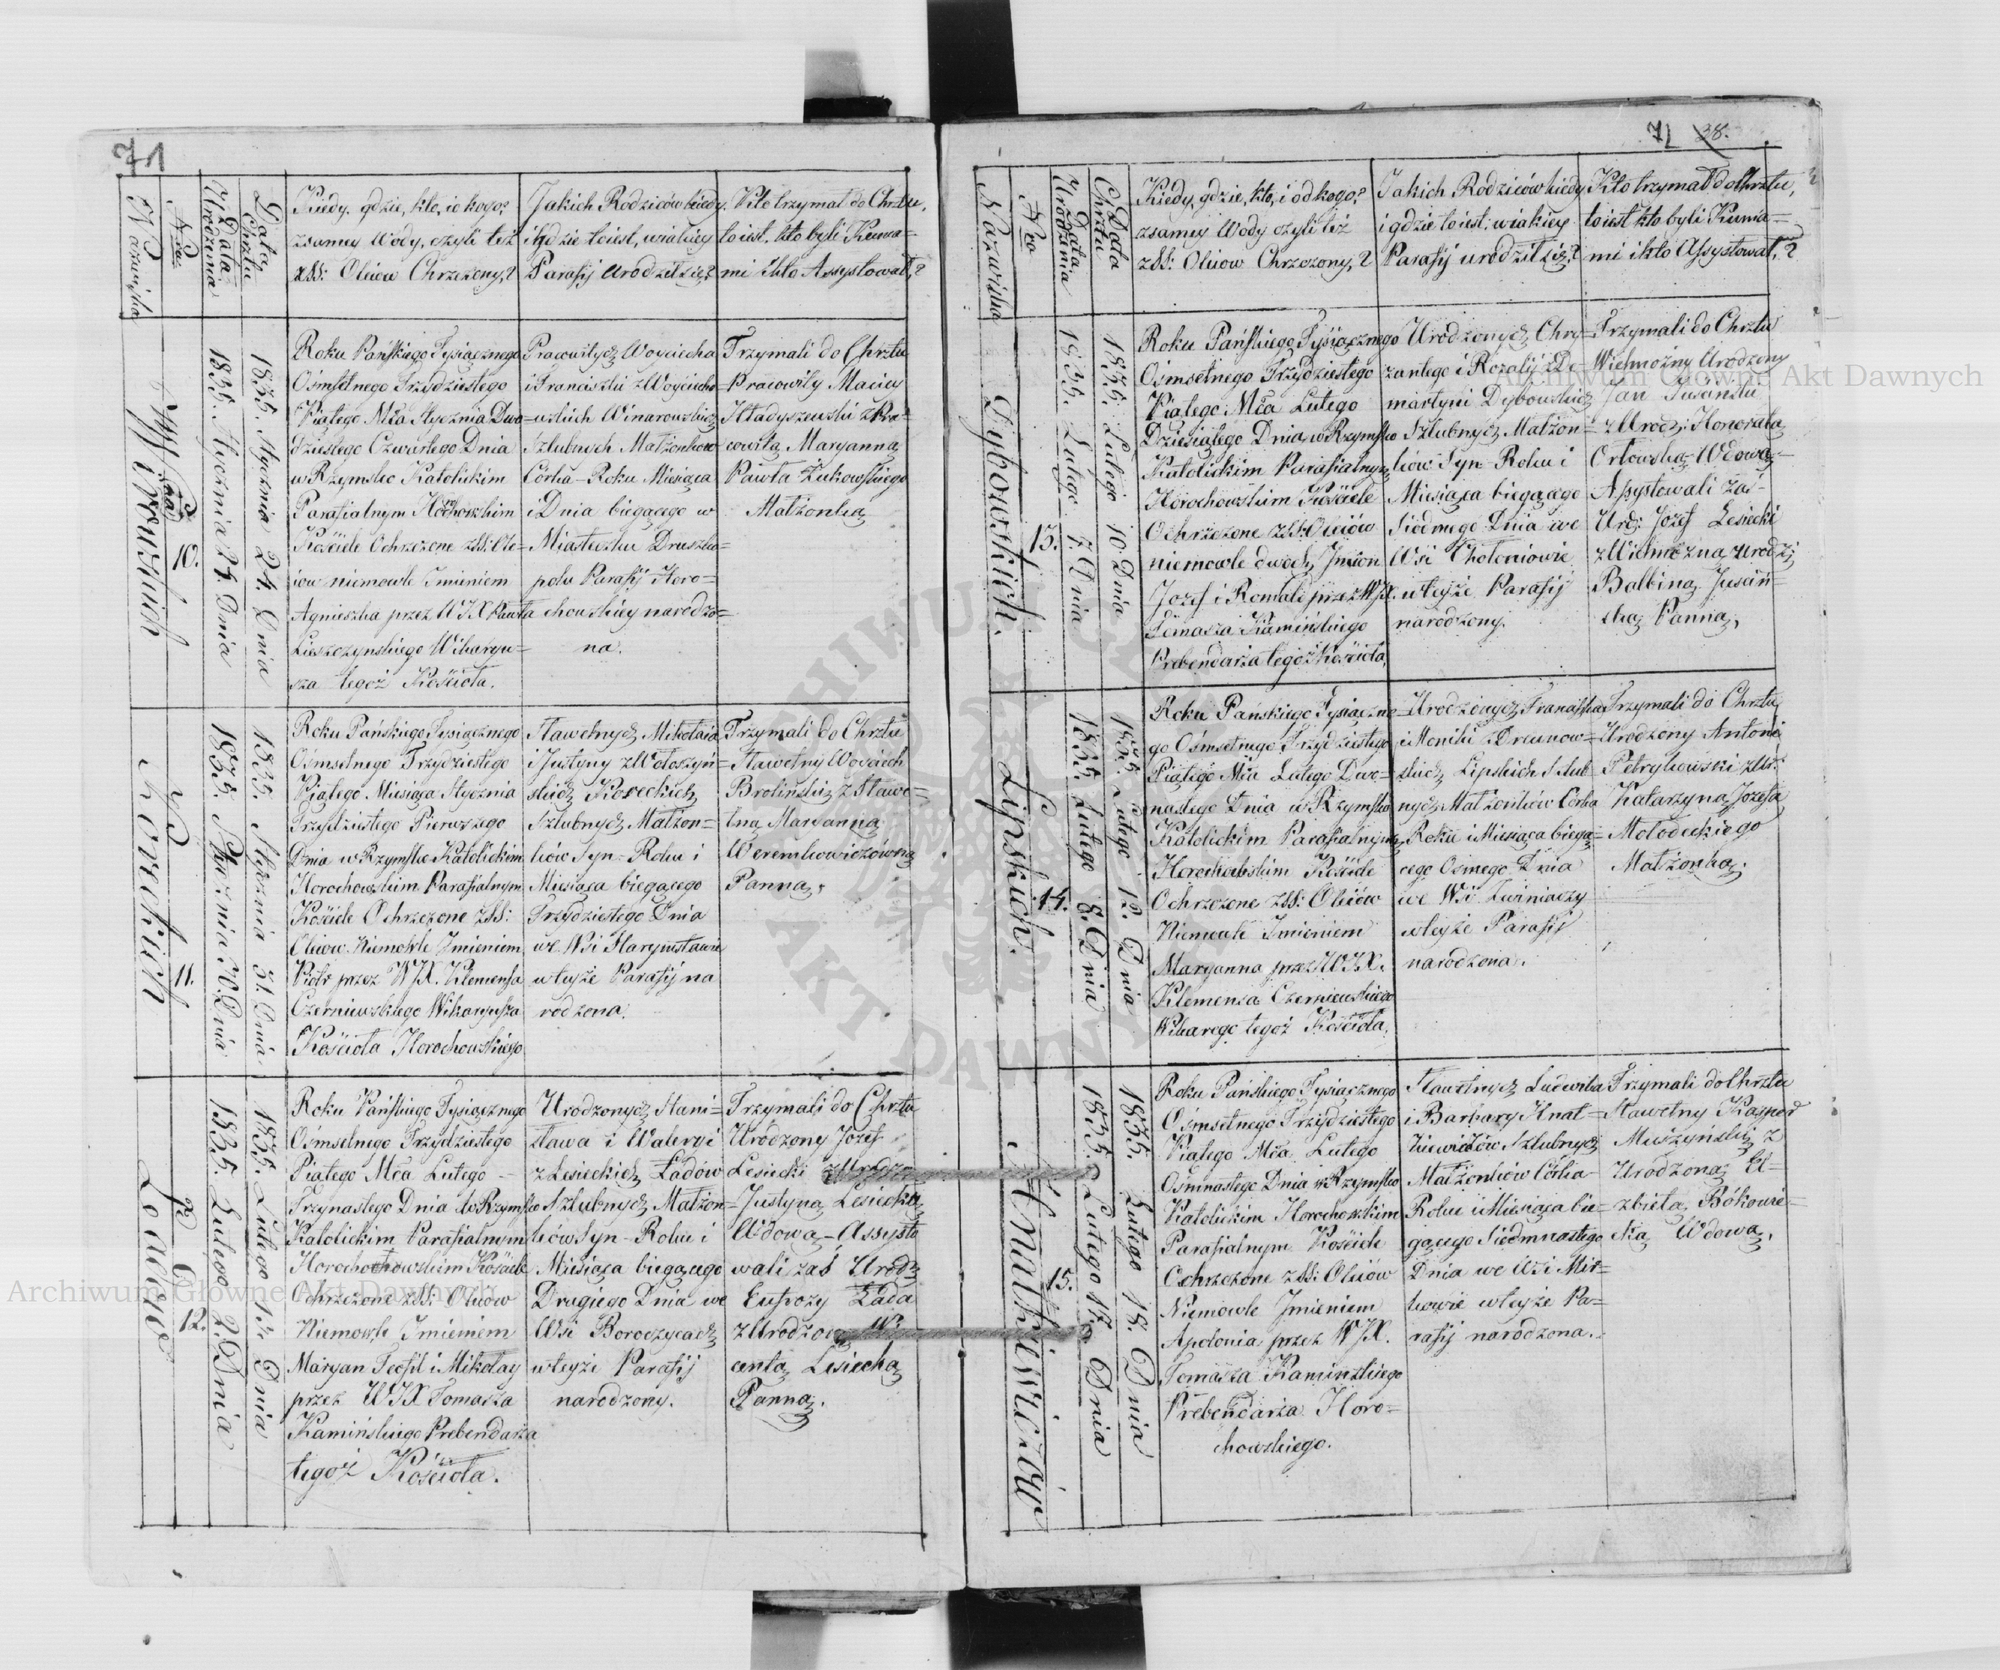 71
Nazwiska
Nro
Data Urodzenia
Data Chrztu
Kiedy, gdzie, kto, i o kogo?
z samey Wody, czyli też
z SS: Oliiow Chrzczony,?
Jakich Rodziców kiedy,
i gdzie to iest, w iakiey
Parafij urodził się,?
Kto trzymał do Chrztu,
to iest, kto byli Kuma=
mi i kto Assystował,?
10.
1835. Stycznia 24. Dnia
Roku Pańskiego Tysiącznego
Ośmsetnego Trzydziestego
Piątego Mca Stycznia Dwu=
dziestego Czwartego Dnia
w Rzymsko Katolickim
Parafialnym Horochowskim
Kościele Ochrzczone z SS: Ole=
iow niemowle Imieniem
Agnieszka przez WJX Pawła
Leszczynskiego Wikaryu=
sza tegoż Kościoła.
Pracowitych Woyciecha
i Franciszki z Woyciecho=
wskich Winarowskich
Szlubnych Małżonkow
Córka Roku Miesiąca
i Dnia biegącego w
Miasteczku Druszko=
polu Parafij Horo=
chowskiey narodzo=
na.
Trzymali do Chrztu
Pracowity Maciey
Hładyszewski z Pra=
cowitą Maryanną
Pawła Żukowskiego
Małżonką
Koreckich
11.
1835. Stycznia 30. Dnia
1835. Stycznia 31. Dnia
Roku Pańskiego Tysiącznego
Ośmsetnego Trzydziestego
Piątego Miesiąca Stycznia
Trzydziestego Pierwszego
Dnia w Rzymsko Katolickim
Horochowskim Parafialnym
Kościele Ochrzczone z SS:
Oleiow Niemowle Imieniem
Piotr przez WJX. Klemensa
Czerniewskiego Wikaryusza
Kościoła Horochowskiego
Sławetnych Mikołaia
i Justyny z Wołoszyń=
skich Koreckich
Szlubnych Małżon=
ków Syn Roku i
Miesiąca biegącego
Trzydziestego Dnia
we Wsi Starymstawie
w teyże Parafij na
rodzona.
Trzymali do Chrztu
Sławetny Woyciech
Broliński z Sławe=
tną Maryanną
Weremkowiczówną
Panną.
Ładów
12.
1835. Lutego 2. Dnia
1835. Lutego 13. Dnia
Roku Pańskiego Tysiącznego
Ośmsetnego Trzydziestego
Piątego Mca Lutego
Trzynastego Dnia w Rzymsko
Katolickim Parafialnym
Kościele
Ochrzczone z SS: Oleiow
Niemowle Imieniem
Maryan Teofil i Mikołay
przez WJX Tomasza
Kamińskiego Prebendarza
tegoż Kościoła.
Urodzonych Stani=
sława i Waleryi
z Lesieckich Ładów
Szlubnych Małżon=
ków Syn Roku i
Miesiąca biegącego
Drugiego Dnia we
Wsi Boroczycach
w teyże Parafij
narodzony.
Trzymali do Chrztu
Urodzony Jozef
Lesiecki
Justyną Lesiecką
Wdową Assysto
wali zaś Urodz:
Eufrozy Łada
z Urodzoną Win=
centą Lesiecką
Panną.
71 38.
Nazwiska
Nro
Data Urodzenia
Data Chrztu
Kiedy, gdzie, kto, i od kogo?
z samey Wody czyli też
z SS: Oliiow Chrzczony,?
Jakich Rodziców kiedy
i gdzie to iest, w iakiey
Parafij urodził się,?
Kto trzymał do Chrztu,
to iest kto byli Kuma=
mi i kto Assystował,?
Dybowskich.
13.
1835. Lutego 7. Dnia
1835. Lutego 10. Dnia
Roku Pańskiego Tysiącznego
Ośmsetnego Trzydziestego
Piątego Mca Lutego
Dziesiątego Dnia w Rzymsko
Katolickim Parafialnym
Horochowskim Kościele
Ochrzczone z SS: Oleiów
niemowle dwoch Imion
Jozef i Romuald przez WJX.
Tomasza Kamińskiego
Prebendarza tegoż Kościoła.
Urodzonych Chry=
zantego i Rozalij z De=
martyni Dybowskich
Szlubnych Małżon=
ków Syn Roku i
Miesiąca biegącego
Siodmego Dnia we
Wsi Chołoniowie
w teyże Parafij
narodzony.
Trzymali do Chrztu
Wielmożny Urodzony
Jan
z Urodz: Honoratą
Orłowską Wdową
Assystowali zaś
Urdz: Jozef Lesiecki
z Wielmożną Urodz:
Balbiną
ską Panną,
Lipskich.
14.
1835. Lutego 8. Dnia
1835. Lutego 12. Dnia
Roku Pańskiego Tysiączne=
go Ośmsetnego Trzydziestego
Piątego Mca Lutego Dwu=
nastego Dnia w Rzymsko
Katolickim Parafialnym
Horochowskim Kościele
Ochrzczone z SS: Oleiów
Niemowle Imieniem
Maryanna przez WJX.
Klemensa Czerniewskiego
Wikarego tegoż Kościoła.
Urodzonych Franciszka
i Moniki z Drewnow=
skich Lipskich Szlub=
nych Małżonków Córka
Roku i Miesiąca biegą=
cego Osmego Dnia
we Wsi Zwiniaczy
w teyże Parafij
narodzona.
Trzymali do Chrztu
Urodzony Antoni
Petrykowski z Ur:
Katarzyną Jozefa
Mołodeckiego
Małżonką.
Hnatkiewiczów
15.
1835. Lutego 17. Dnia
1835. Lutego 18. Dnia
Roku Pańskiego Tysiącznego
Ośmsetnego Trzydziestego
Piątego Mca Lutego
Ośmnastego Dnia w Rzymsko
Katolickim Horochowskim
Parafialnym Kościele
Ochrzczone z SS: Oleiów
Niemowle Imieniem
Apolonia przez WJX.
Tomasza Kaminskiego
Prebendarza Horo=
chowskiego.
Sławetnych Ludwika
i Barbary Hnat=
kiewiczów Szlubnych
Małżonków Córka
Roku i Miesiąca bie=
gącego Siedmnastego
Dnia we Wsi Mir=
kowie w teyże Pa=
rafij narodzona.
Trzymali do Chrztu
Sławetny Kasper
Muszyński z
Urodzoną El=
zbietą
Wdową.
Archiwum Główne Akt Dawnych
Archiwum Główne Akt Dawnych
ARCHIWUM GŁÓWNE AKT DAWNYCH